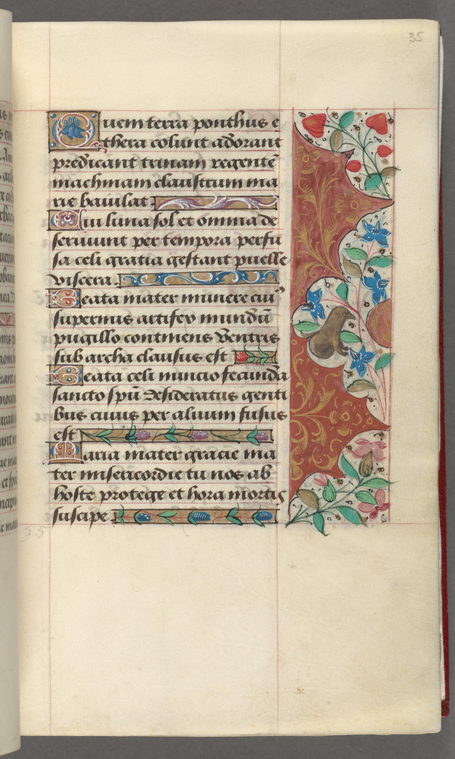 35
Quem terra ponthus e
thera colunt adorant
predicant trinam regente͞
machinam claustrum ma
rie baiulat
Cui luna sol et omnia de
seruiunt per tempora perfu
sa celi gratia gestant puelle
viscera.
Beata mater munere cui᷒
supernus artifex mundu͞
pugillo continens ventris
sub archa clausus est
Beata celi nuncio fecunda
sancto spu͞ desideratus genti
bus cuius per aluum fusus
est
Maria mater gracie ma
ter misericordie tu nos ab
hoste protege et hora mortis
suscipe.